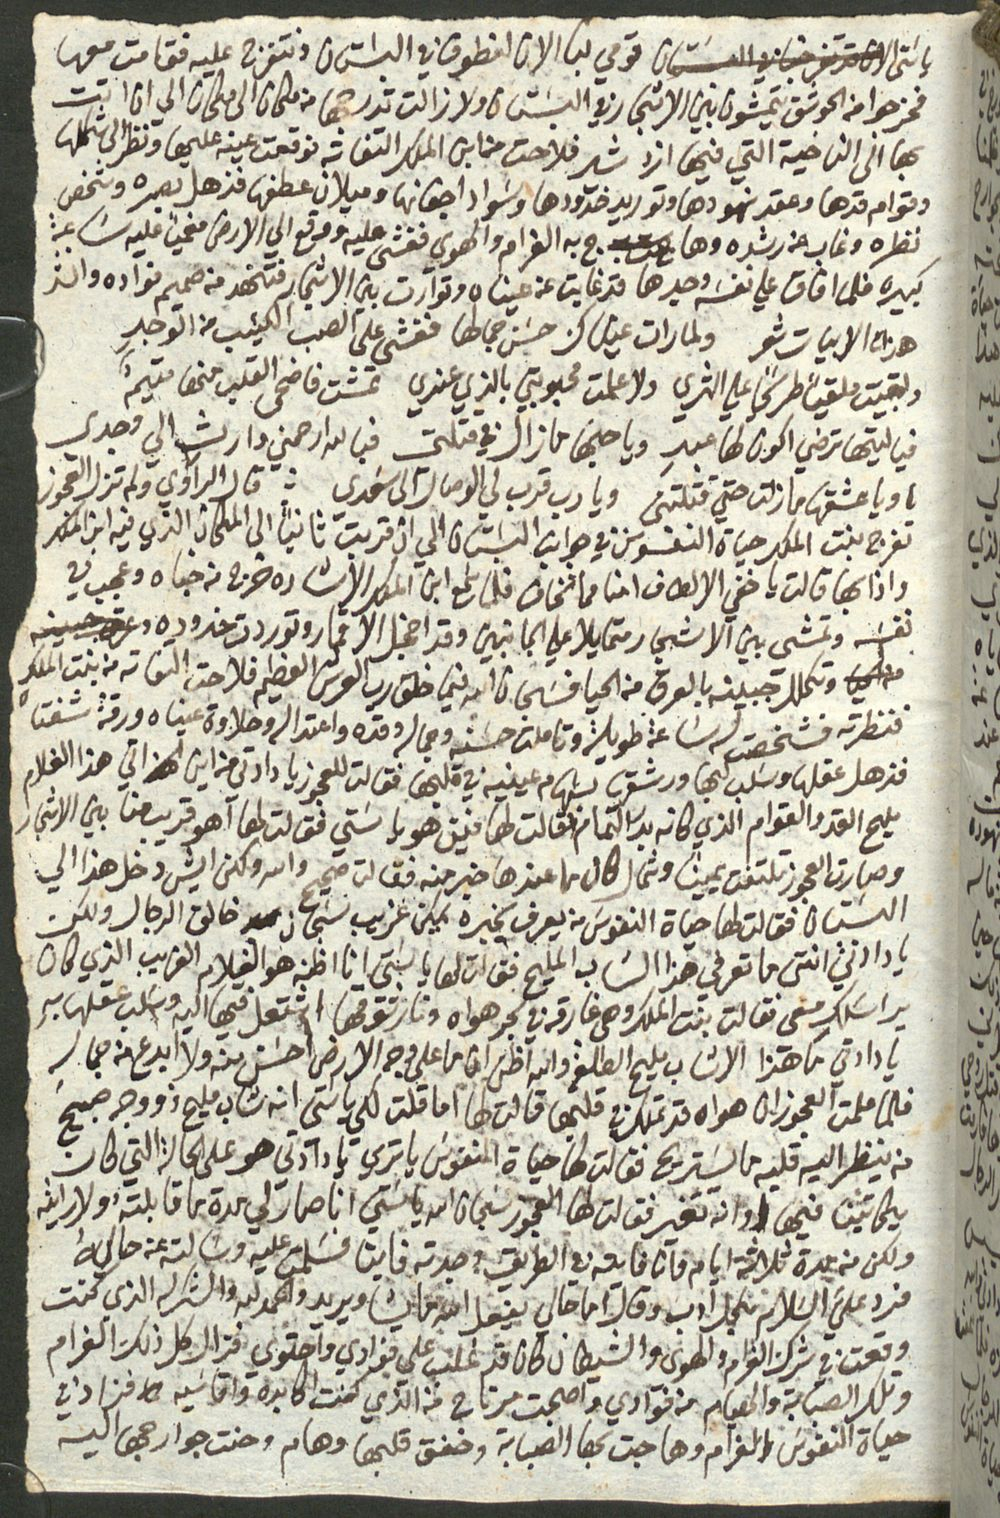 ياستي الان قومي بنا الان لنطوف في البستان ونتفرج عليه فقامت معها
فخرجوا من الجوشق يتمشون بين الاشجار في البستان ولا زالت تدرجها من مكان الى مكان الى ان اتت
بها الى الناحية التي فيها ازدشير فلاحت من ابن الملك التفاته فوقعت عينه عليها ونظر الى شكلها
وقوام قدها وعقد نهودها وتوريد خدودها وسواد اجفانها وميلان عطفها فذهل بصره وشخص
نظره وغاب عن رشده وهاج به الغرام والهوي فغشي عليه ووقع الى الارض مغميا عليه ساعة
كبيره فلما افاق على نفسه وجدها قد غابت عن عيناه وتوارت بين الاشجار فتنهد من صميم فواده وانشد
هذه الابيات شعر ولما رات عيناي حسن جمالها فغشي على الصب الكيئب من الوجد
وبقيت ملقيا طريحا على الثري ولا علمت محبوبتي بالذي عندي تمشت فاضحى القلب منها متيما
فيا ليتها ترضي اكون لها عبد ويا حبها ما زال في قتلتي فبالله ارحمني وارث الى وجدي
ويا عشقها ما زلت حتي قتلتني ويا رب قرب لي الوصال الى سعدي قال الراوي ولم تزل العجوز
تفرج بنت الملك حياة النفوس في جوانب البستان الى ان قربت ثانيا الى المكان الذي فيه ابن الملك
واذا بها قالت يا خفي الالطاف امنا مما نخاف فلما سمع ابن الملك الاشاره خرج من خباه وعجب في
نفسه وتمشي بين الاشجار متمايلا على الجانبين وقد اخجل الاقمار وتوردت خدوده
وتكلل جبينه بالعرق من الحيا فسبحان الله فيما خلق رب العرش العظيم فلاحت التفاته من بنت الملك
فنظرته فشخصت له ساعة طويلة وتاملت حسنه وجماله وقده واعتداله وحلاوة عيناه ورقة شفتاه
فذهل عقلها وسلب لبها ورشقها بسهام عينيه في قلبها فقالت للعجوز يا دادتي من اين اتي هذا الغلام
مليح القد والقوام الذي كانه بدر التمام فقالت لها فين هو يا ستي فقالت لها اهو قريب منا بين الاشجار
وصارت العجوز تلتفت يمينا وشمال كان ما عندها خبر منه فقالت صحيح والله ولكن ايش دخل هذا الى
البستان فقالت لها حياة النفوس من يعرف بخبره يمكن غريب سبحان خالق الرجال ولكن
يا دادتي انتي ما تعرفي هذا الشاب المليح فقالت لها يا ستي انا اظنه هو الغلام الغريب الذي كان
يراسلك معي فقالت بنت الملك وهي غارقه في بحر هواه ونار شوقها اشتعل فيها اليه وسلب عقلها به
يا دادتي ما هذا الا شاب مليح الطلعة والله اظن ان ما على وجه الارض احسن منه ولا ابدع من جماله
فلما علمت العجوز ان هواه قد تمكن في قلبها قالت لها اما قلت لكي يا ستي انه شاب مليح ذو وجه صبيح
من ينظر اليه قلبه ما يستريح فقالت لها حياة النفوس يا تري يا دادتي هو على الحالة التي كان
يكاتبنا فيها وانه تغير فقالت لها العجوز سبحان الله يا ستي انا صار لي مدة ما قابلته ولا رايته
ولكن من مدة ثلاثة ايام وانا فايته في الطريق وجدته فايتا فسلمت عليه وسالته عن حاله
فرد علي السلام بكمال ادب وقال اما حالي يفعل الله ما يشا ويريد والحمد لله والشكر له الذي كنت
وقعت في شرك الغرام والهوي والشيطان كان قد غلب على فوادي واحتوي فزال كل ذلك الغرام
وتلك الصبابة والهيام من فوادي واصبحت مرتاح من الذي كنت اكابده واقاسيه فزاد في
حياة النفوس الغرام وهاجت بها الصبابة وخفق قلبها وهام وحنت جوارحها اليه